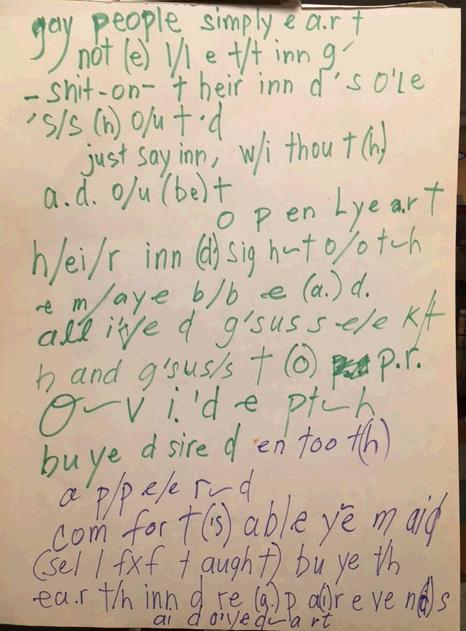 gay people simply e a r t
not (e) l/l e t/t inn g'
- shit-on- t heir inn d's o'le
's/s (h) o/u t·d
just say inn, w/i thou t (h)
a.d. o/u (be) t
o p en Lye a.r t
h/ei/r inn (d) sig h-t o/o t-h
e m/aye b/b e (a.) d.
all i've d g'sus s e/e k/t
h and g'sus/s t (o) p.r.
O-v i.'d e pt-h
bu ye d sire d en too t(h)
a p/p e/e r-d
com for t (is) able ye m aid
(sel l fxf t augh t) bu ye th
ea.r t/h inn d re (g.) p a(i)r e ve n(d) s